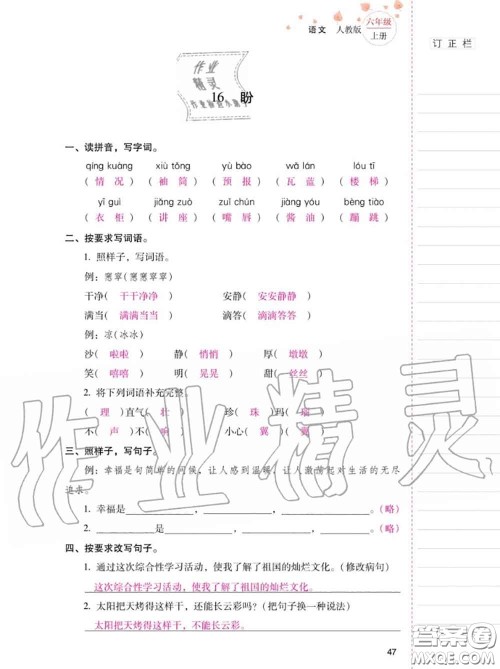 语文 人教版 六年级上册
订正栏
作业精灵
16 盼
一、读拼音，写字词。
qíng kuàng xiù tǒng yù bào wǎ lán lóu tī
（情况）（袖筒）（预报）（瓦蓝）（楼梯）
yī guì jiǎng zuò zuǐ chún jiàng yóu bèng tiào
（衣柜）（讲座）（嘴唇）（酱油）（蹦跳）
二、按要求写词语。
1. 照样子，写词语。
例：窸窣(窸窸窣窣)
干净（干干净净） 安静（安安静静）
满当（满满当当） 滴答（滴滴答答）
例：凉(冰冰)
沙（啦啦） 静（悄悄） 厚（墩墩）
笑（嘻嘻） 明（晃晃） 甜（丝丝）
2. 将下列词语补充完整。
（理）直气（壮） 珍（珠）玛（瑙）
不（声）不（响） 小心（翼）（翼）
三、照样子，写句子。
例：幸福是句简单的问候，让人感到温暖，让人激荡起对生活的无尽
追求。
1. 幸福是____，____，____。（略）
2. ____是____，____，____。（略）
四、按要求改写句子。
1. 通过这次综合性学习活动，使我了解了祖国的灿烂文化。(修改病句)
这次综合性学习活动，使我了解了祖国的灿烂文化。
2. 太阳把天烤得这样干，还能长云彩吗？(把句子换一种说法)
太阳把天烤得这样干，不能长云彩。
47
作业精灵
MXQE.COM